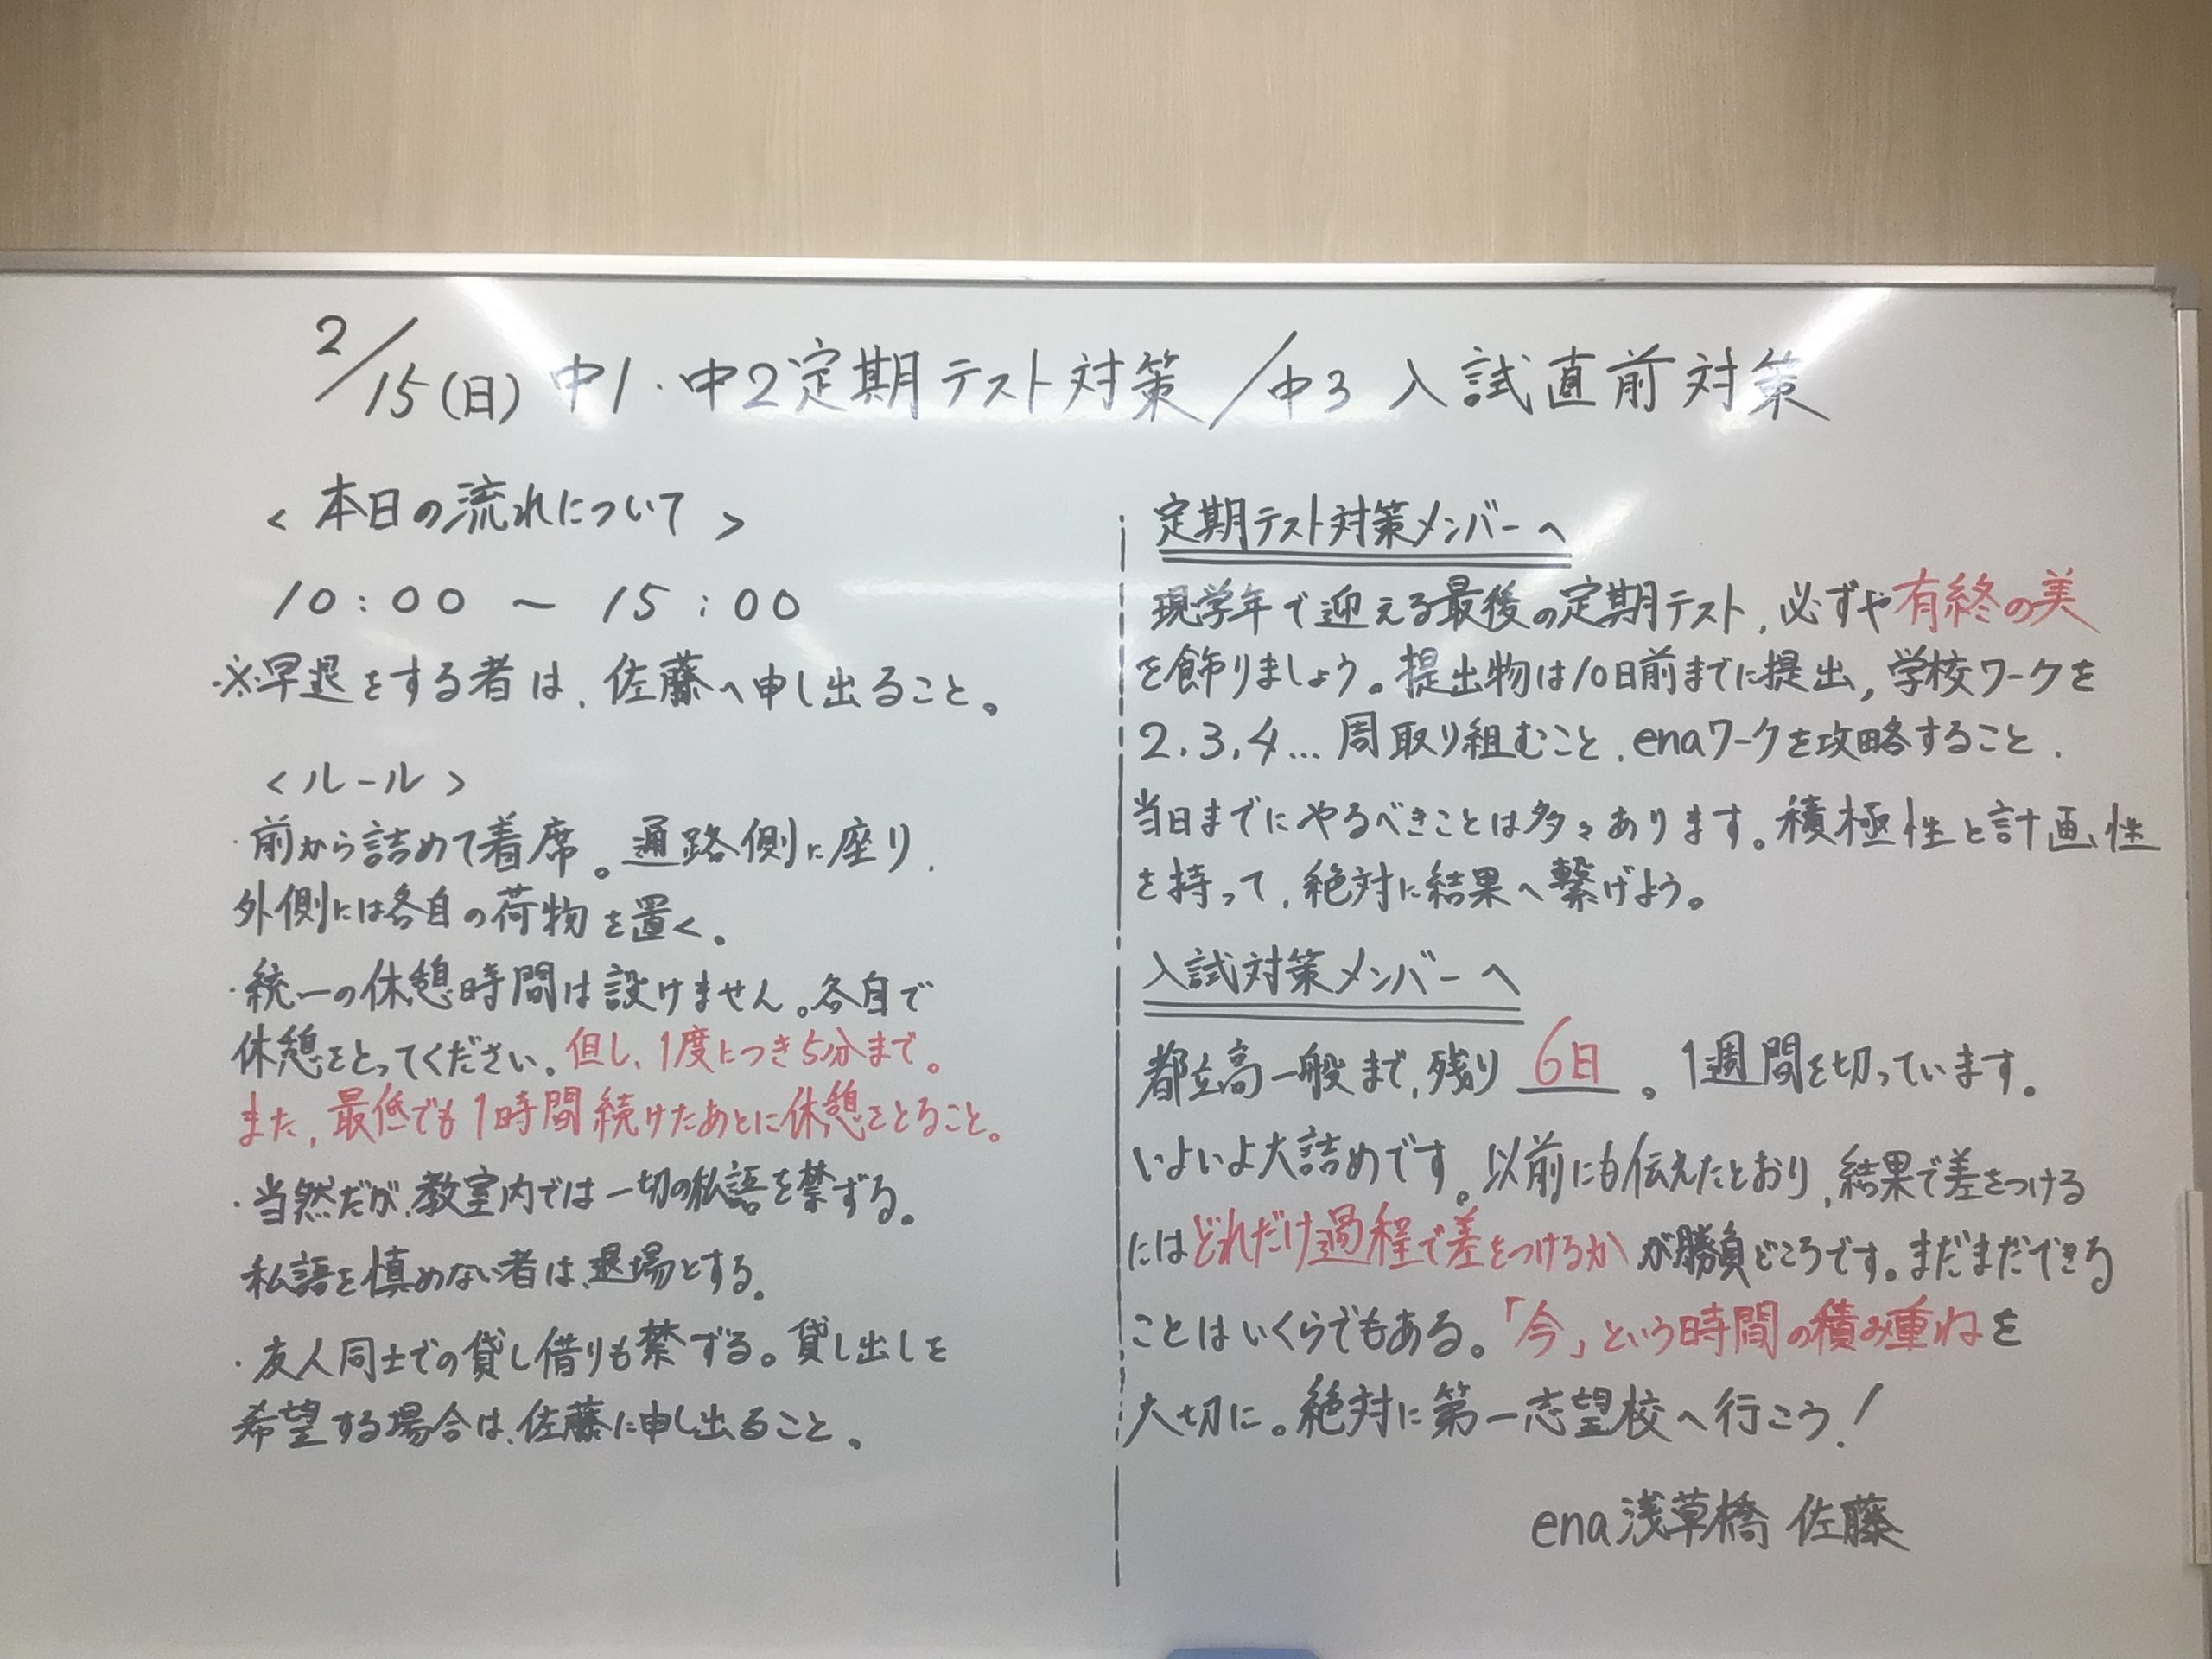 2/15(日) 中1・中2定期テスト対策/中3 入試直前対策
<本日の流れについて>
10:00 ～ 15:00
※早退をする者は、佐藤へ申し出ること。
<ルール>
・前から詰めて着席。通路側に座り、
外側には各自の荷物を置く。
・統一の休憩時間は設けません。各自で
休憩をとってください。但し、1度につき5分まで。
また、最低でも1時間続けたあとに休憩をとること。
・当然だが、教室内では一切の私語を禁ずる。
私語を慎めない者は、退場とする。
・友人同士での貸し借りも禁ずる。貸し出しを
希望する場合は、佐藤に申し出ること。
定期テスト対策メンバーへ
現学年で迎える最後の定期テスト、必ずや有終の美
を飾りましょう。提出物は10日前までに提出、学校ワークを
2、3、4…周取り組むこと、enaワークを攻略すること、
当日までにやるべきことは多々あります。積極性と計画性
を持って、絶対に結果へ繋げよう。
入試対策メンバーへ
都立高一般まで、残り 6日 。1週間を切っています。
いよいよ大詰めです。以前にも伝えたとおり、結果で差をつける
にはどれだけ過程で差をつけるかが勝負どころです。まだまだできる
ことはいくらでもある。「今」という時間の積み重ねを
大切に。絶対に第一志望校へ行こう!
ena浅草橋 佐藤